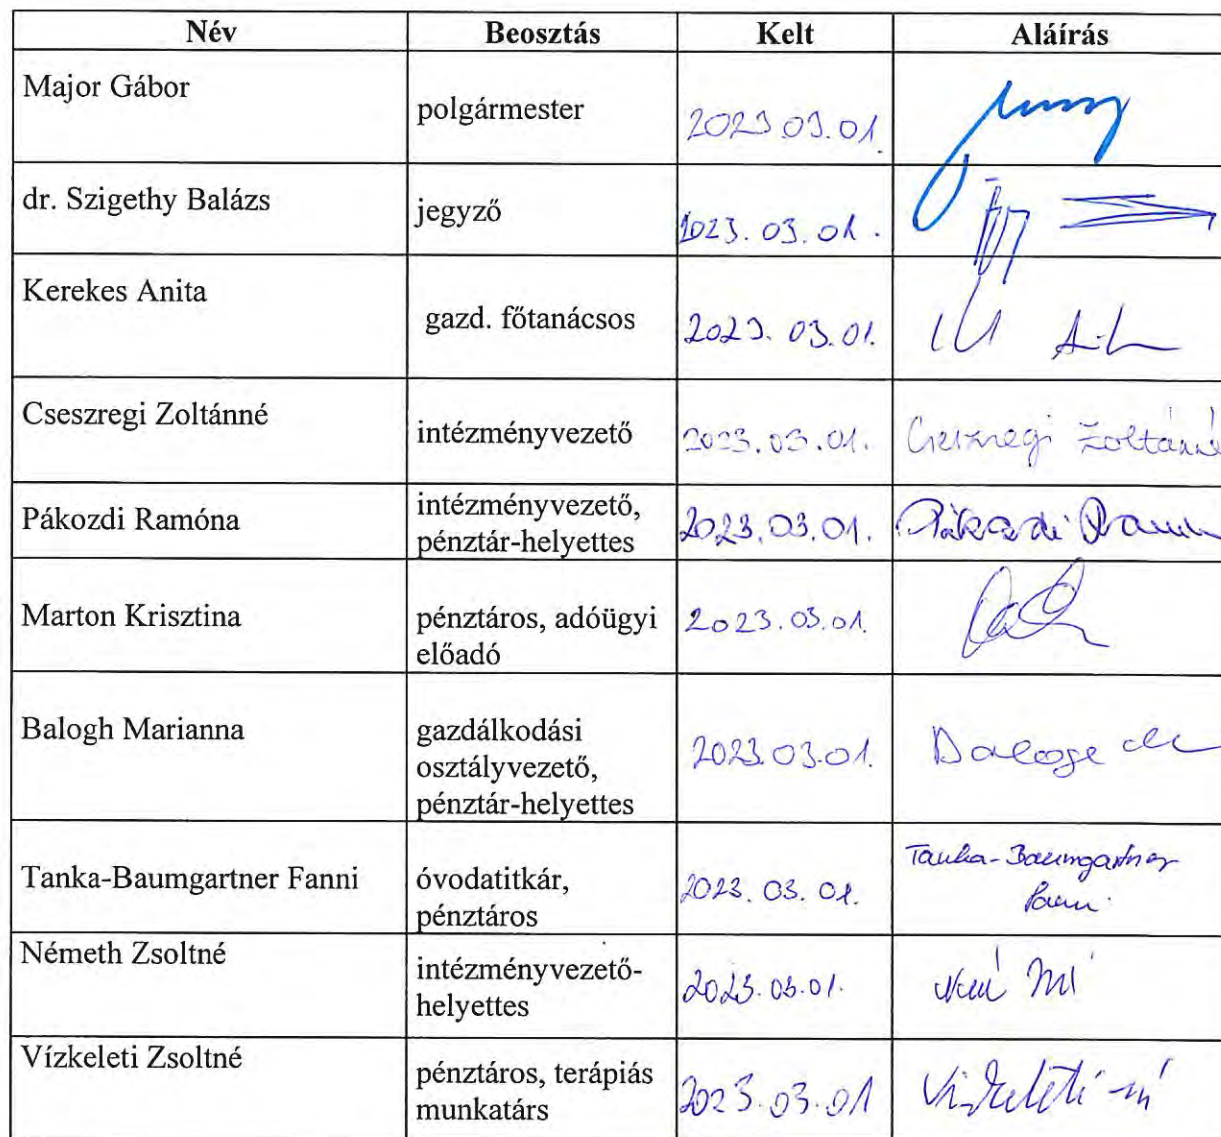 Név Beosztás Kelt Aláírás
Major Gábor
polgármester 2023.03.01.
dr. Szigethy Balázs
jegyző 2023. 03. 01.
Kerekes Anita
gazd. főtanácsos 2023. 03. 01.
Cseszregi Zoltánné
intézményvezető 2023.03.01. Cseszregi Zoltánné
Pákozdi Ramóna
intézményvezető,
pénztár-helyettes
2023.03.01. Pákozdi
Marton Krisztina
pénztáros, adóügyi
előadó
2023.03.01.
Balogh Marianna
gazdálkodási
osztályvezető,
pénztár-helyettes
2023.03.01.
Tanka-Baumgartner Fanni
óvodatitkár,
pénztáros
2023. 03. 01.
Tanka-Baumgartner
Fanni
Németh Zsoltné
intézményvezető-
helyettes
2023.03.01.
Vízkeleti Zsoltné
pénztáros, terápiás
munkatárs
2023.03.01 Vízkeleti -né